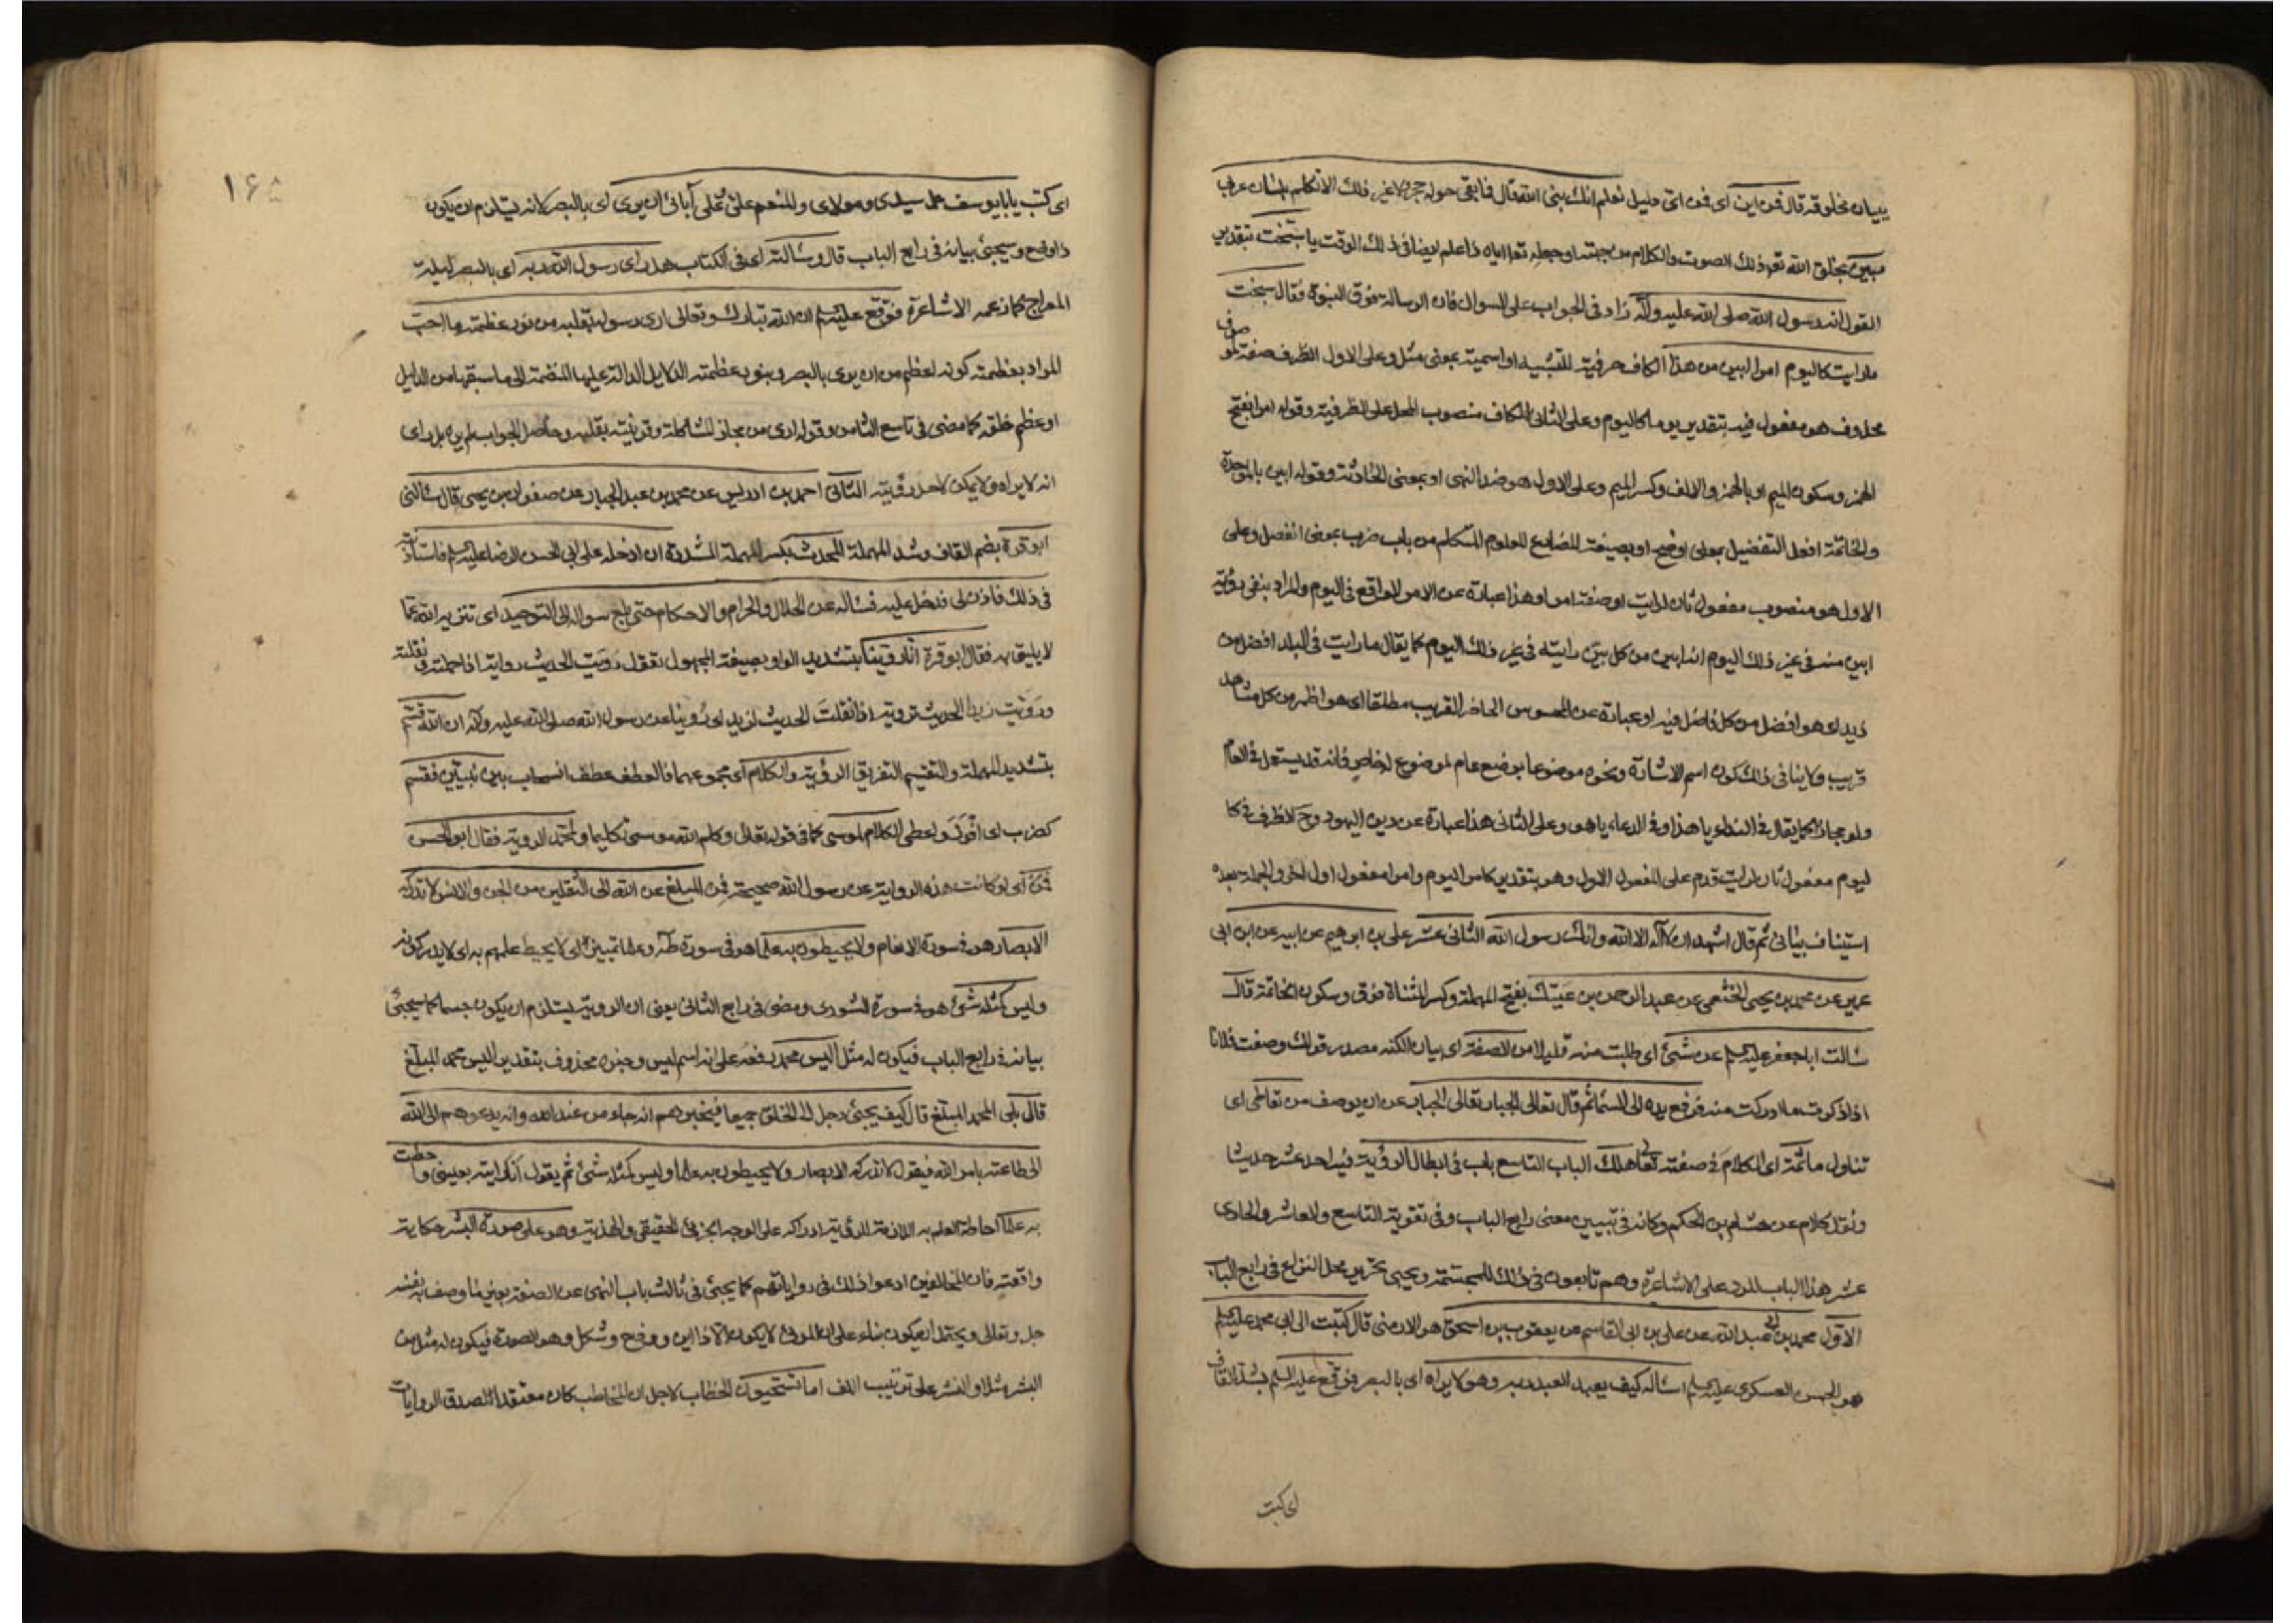 ببيان مخلوقه قال فمن اين اى فمن اى دليل نعلم انك نبى الله قال فما بقى حوله حجر ولا غير ذلك الا تكلم بلسان عربى
مبين بخلق الله تعو ذلك الصوت والكلام من جهته وجعله تعا اياه ذا علم ايضا فى ذلك الوقت يا سبخت بتقدير
القول انه رسول الله صلى الله عليه وآله زاد فى الجواب على السوال فان الرسالة فوق النبوة فقال سبخت
ما رايت كاليوم امرا ابين من هذا الكاف حرفية للتشبيه او اسمية بمعنى مثل وعلى الاول الظرف صفة لموصوف
محذوف هو مفعول فيه بتقدير يوما كاليوم وعلى الثانى الكاف منصوب المحل على الظرفية وقوله امرا بفتح
الهمز وسكون الميم او بالهمز والالف وكسر الميم وعلى الاول هو ضد النهى او بمعنى الحادثة وقوله ابين بالموحدة
والخاتمة افعل التفضيل بمعنى اوضح او بصيغة المضارع المعلوم المتكلم من باب ضرب بمعنى انفصل وعلى
الاول هو منصوب مفعول ثان لرايت او صفة امرا وهذا عبارة عن الامر الواقع فى اليوم والمراد بنفى رؤية
ابين منه فى غير ذلك اليوم انه ابين من كل بين رايته فى غير ذلك اليوم كما يقال ما رايت فى البلد افضل من
زيد اى هو افضل من كل فاضل فيه او عبارة عن المحسوس الحاضر القريب مطلقا اى هو اظهر من كل مشاهد
قريب ولا ينافى ذلك كون اسم الاشارة ونحوه موضوعا بوضع عام لموضوع له خاص فانه قد يستعمل فى العام
ولو مجازا كما يقال فى النداء يا هذا وفى الدعاء يا هو وعلى الثانى هذا عبارة عن دين اليهود وح الظرف فى كا
ليوم مفعول ثان لرايت قدم على المفعول الاول وهو بتقدير كامر اليوم وامرا مفعول اول اخر والجملة بعده
استيناف بيانى ثم قال اشهد ان لا آله الا الله وانك رسول الله الثانى عشر على بن ابرهيم عن ابيه عن ابن ابى
عمير عن محمد بن يحيى الخثعمى عن عبد الرحمن بن عتيك بفتح المهملة وكسر المثناة فوق وسكون الخاتمة قال
سالت ابا جعفر عليه السلم عن شىء اى طلبت منه قليلا من الصفة اى بيان الكنه مصدر قولك وصفت فلانا
اذا ذكرت ما ادركت منه فرفع يده الى السماء ثم قال تعالى الجبار تعالى الجبار عن ان يوصف من تعاطى اى
تناول ما ثمة اى الكلام فى صفته تعالى هلك الباب التاسع باب فى ابطال الرؤية فيه احد عشر حديثا
ونقل كلام عن هشام بن الحكم وكانه فى تبيين معنى رابع الباب وفى تقوية التاسع والعاشر والحادى
عشر هذا الباب للرد على الاشاعرة وهم تابعون فى ذلك للمجسمة ويجىء تحرير محل النزاع فى رابع الباب
الاول محمد بن ابى عبد الله عن على بن ابى القاسم عن يعقوب بن اسحق هو الارمنى قال كتبت الى ابى محمد عليه السلم
هو الحسن العسكرى عليه السلم اساله كيف يعبد العبد ربه وهو لا يراه اى بالبصر فوقع عليه السلم بشد القاف
اى كتب
١٦٨
اى كتب يا بايوسف جل سيدى ومولاى والمنعم على وعلى آبائى ان يرى اى بالبصر لانه يستلزم ان يكون
ذا وضح وسيجىء بيانه فى رابع الباب قال وسالته اى فى الكتاب هل راى رسول الله ربه اى بالبصر ليلة
المعراج كما زعمه الاشاعرة فوقع عليه السلم ان الله تبارك وتعالى ارى رسوله بقلبه من نور عظمته ما احب
المراد بعظمته كونه اعظم من ان يرى بالبصر وبنور عظمته الدلايل الدالة عليها المنضمة الى ما سبقها من الدليل
او عظم خلقه كما مضى فى تاسع الثامن وقوله ارى من مجاز المشاكلة وقرينته بقلبه وحاصل الجواب لم يره بل راى
انه لا يراه ولا يمكن لاحد رؤيته الثانى احمد بن ادريس عن محمد بن عبد الجبار عن صفوان بن يحيى قال سالنى
ابو قرة بضم القاف وشد المهملة المحدث بكسر المهملة المشددة ان ادخله على ابى الحسن الرضا عليه السلم فاستاذنته
فى ذلك فاذن لى فدخل عليه فساله عن الحلال والحرام والاحكام حتى بلغ سواله الى التوحيد اى تنزيه الله عما
لا يليق به فقال ابو قرة انا روينا بتشديد الواو بصيغة المجهول تقول رويت الحديث رواية اذا حملته ونقلته
وروّيت زيدا الحديث تروية اذا نقلت الحديث لزيد اى رُوينا عن رسول الله صلى الله عليه وآله ان الله قسّم
بتشديد المهملة والتقسيم التفريق الرؤية والكلام اى مجموعهما فالعطف عطف انسحاب بين نبيين فقسم
كضرب اى افرَز واعطى الكلام لموسى كما فى قوله تعالى وكلم الله موسى تكليما ولمحمد الروية فقال ابو الحسن
فمَن اى لو كانت هذه الرواية عن رسول الله صحيحة فمن المبلغ عن الله الى الثقلين من الجن والانس لا تدركه
الابصار هو فى سورة الانعام ولا يحيطون به علما هو فى سورة طه وعلما تمييز اى لا يحيط علمهم به اى لا يدركونه
وليس كمثله شىء هو فى سورة الشورى ومضى فى رابع الثانى يعنى ان الروية يستلزم ان يكون جسما كما سيجىء
بيانه فى رابع الباب فيكون له مثل اليس محمد رفعه على انه اسم ليس وخبره محذوف بتقدير اليس محمد المبلغ
قال بلى المحمد المبلغ قال كيف يجىء رجل الى الخلق جميعا فيخبرهم انه جاء من عند الله وانه يدعوهم الى الله
الى طاعته بامر الله فيقول لا تدركه الابصار ولا يحيطون به علما وليس كمثله شىء ثم يقول انا رايته بعينى واحطت
به علما احاطة العلم به اللازمة للرؤية ادراكه على الوجه الجزئى الحقيقى والهذية وهو على صورة البشر حكاية
واقعته فان المخالفين ادعوا ذلك فى رواياتهم كما يجىء فى ثالث باب النهى عن الصفة بغير ما وصف به نفسه
جل وتعالى ويحتمل ان يكون بناء على ان المرئى لا يكون الا ذا اين ووضح وشكل وهو الصورة فيكون له مثل من
البشر مثلا والنشر على ترتيب اللف اما تستحيون الخطاب لاجل ان المخاطب كان معتقدا لصدق الروايات